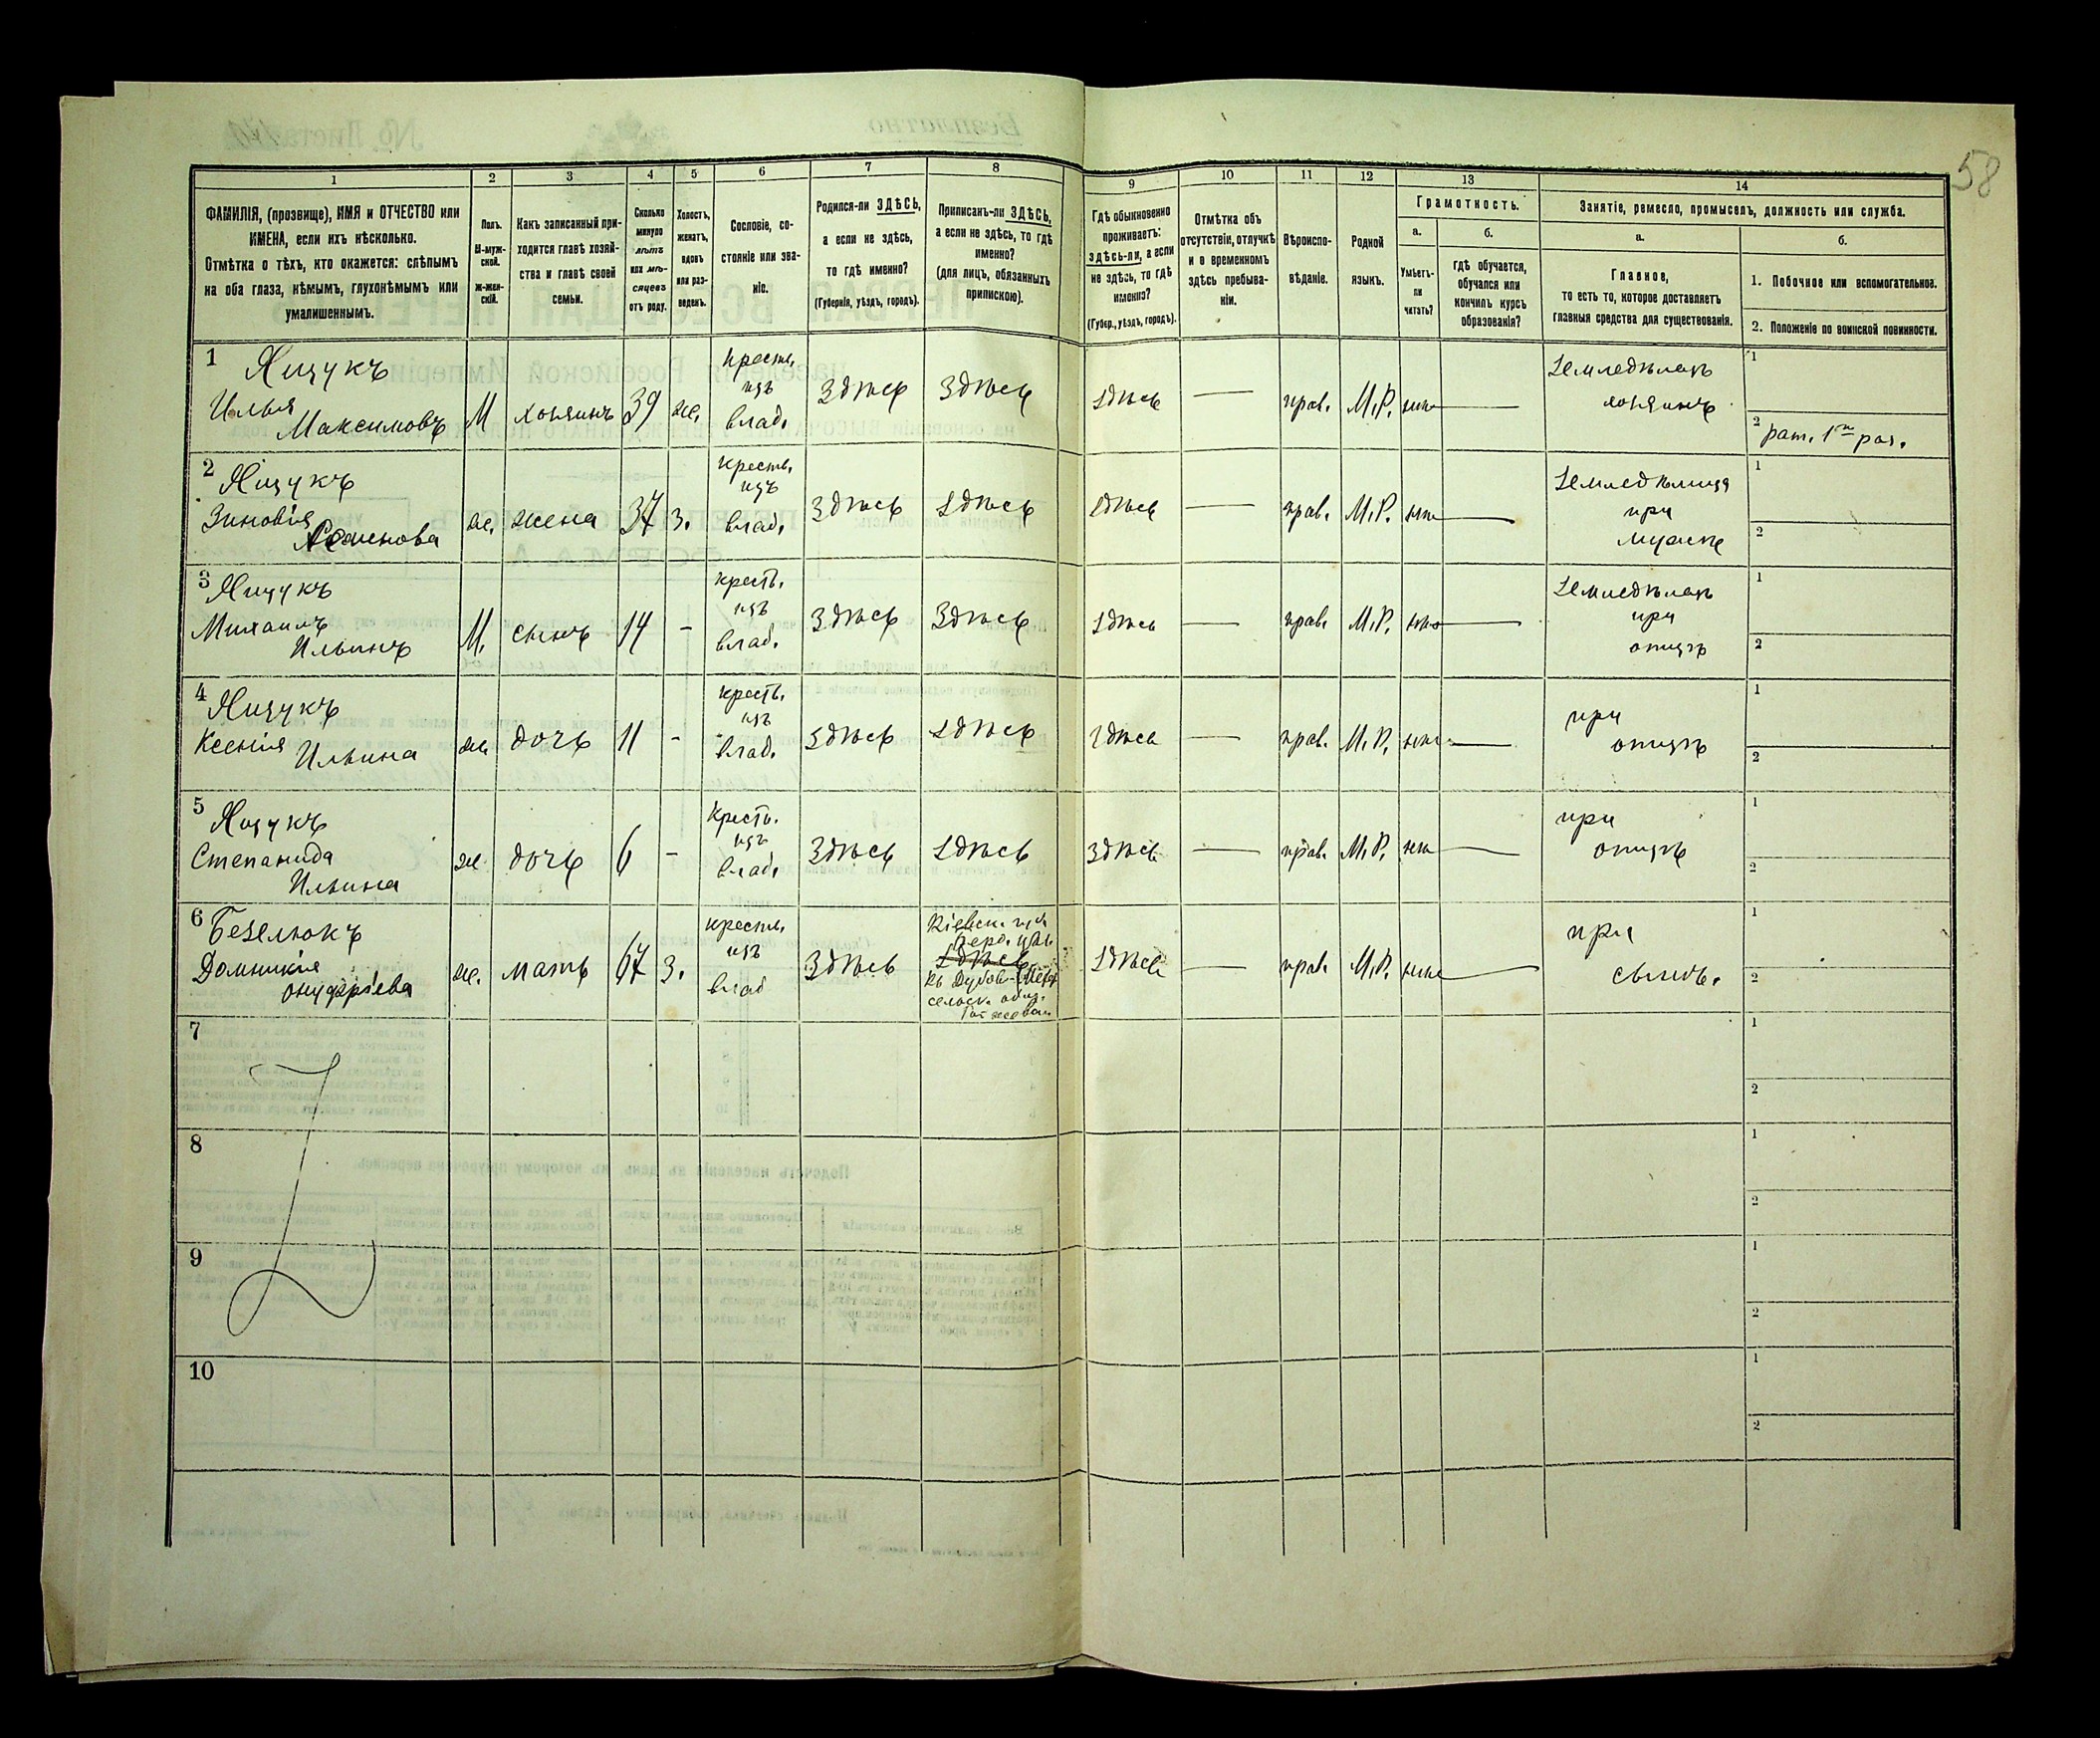 58
1 2 3 4 5 6 7 8 9 10 11 12 13 14
ФАМИЛІЯ, (прозвище), ИМЯ и ОТЧЕСТВО или
ИМЕНА, если ихъ нѣсколько.
Отмѣтка о тѣхъ, кто окажется: слѣпымъ
на оба глаза, нѣмымъ, глухонѣмымъ или
умалишеннымъ.
Полъ.
М-муж-
ской.
Ж-жен-
скій.
Какъ записанный при-
ходится главѣ хозяй-
ства и главѣ своей
семьи.
Сколько
минуло
лѣтъ
или мѣ-
сяцевъ
отъ роду.
Холостъ,
женатъ,
вдовъ
или раз-
веденъ.
Сословіе, со-
стояніе или зва-
ніе.
Родился-ли ЗДѢСЬ,
а если не здѣсь,
то гдѣ именно?
(Губернія, уѣздъ, городъ).
Приписанъ-ли ЗДѢСЬ,
а если не здѣсь, то гдѣ
именно?
(для лицъ, обязанныхъ
припискою).
Гдѣ обыкновенно
проживаетъ:
здѣсь-ли, а если
не здѣсь, то гдѣ
именно?
(Губер., уѣздъ, городъ).
Отмѣтка объ
отсутствіи, отлучкѣ
и о временномъ
здѣсь пребыва-
ніи.
Вѣроиспо-
вѣданіе.
Родной
языкъ.
Грамотность.
а.
Умѣетъ-
ли
читать?
б.
гдѣ обучается,
обучался или
кончилъ курсъ
образованія?
Занятіе, ремесло, промыселъ, должность или служба.
а.
Главное,
то есть то, которое доставляетъ
главныя средства для существованія.
б.
1. Побочное или вспомогательное.
2. Положеніе по воинской повинности.
1 Ящукъ
Илья
Максимовъ
М хозяинъ 39 же.
кресть
изъ
влад.
Здѣсь Здѣсь Здѣсь — прав. М.Р. нѣт —
Земледѣлецъ
хозяинъ
1
2 рат. 1го раз.
2 Ящукъ
Зиновія
Семенова
же. жена 37 з.
крестьь.
изъ
влад.
Здѣсь Здѣсь Здѣсь — прав. М.Р. нѣт —
Земледѣлица
при
мужѣ
1
2
3 Ящукъ
Михаилъ
Ильинъ
М. сынъ 14 -
кресть.
изъ
влад.
Здѣсь Здѣсь Здѣсь — прав. М.Р. нѣт —
Земледѣлецъ
при
отцѣ
1
2
4 Ящукъ
Ксенія
Ильина
же. дочь 11 -
кресть.
изъ
влад.
Здѣсь Здѣсь Здѣсь — прав. М.Р. нѣт —
при
отцѣ
1
2
5 Ящукъ
Степанида
Ильина
же дочь 6 -
Кресть.
изъ
влад.
Здѣсь Здѣсь Здѣсь — прав. М.Р. нѣт —
при
отцѣ
1
2
6 Безелюкъ
Домникія
Онуфріева
же. мать 67 з.
крестья.
изъ
влад
Здѣсь
Кіевск. губ.
Здѣсь
сельск. общ.
Здѣсь — прав. М.Р. нѣт —
при
сынѣ.
1
2
7
1
2
8
1
2
9
1
2
10
1
2